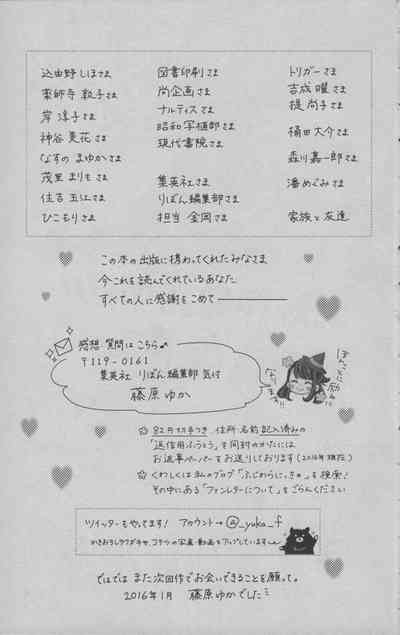 込由野しほさま
薬師寺敦子さま
岸 淳子さま
神谷美花さま
なすの まゆかさま
茂里まりもさま
住吉玉江さま
ひこもりさま
図書印刷さま
尚企画さま
ナルティスさま
昭和写植部さま
現代書院さま
集英社さま
りぼん編集部さま
担当 金岡さま
トリガーさま
吉成曜さま
提 尚子さま
桶田大介さま
森川嘉一郎さま
潘めぐみさま
家族と友達
この本の出版に携わってくれたみなさま
今これを読んでくれているあなた
すべての人に感謝をこめて
感想 質問はこちら
〒119-0161
集英社 りぼん編集部 気付
藤原ゆか
ほんっとに励みに
なります!!
☆ 82円切手つき 住所・名前記入済みの
「返信用ふうとう」を同封のかたには
お返事ペーパーをお送りしております(2016年現在)
☆ くわしくは私のブログ「ふじわらに。きゅ」を検索!
その中にある「ファンレターについて」をごらんください
ツイッターもやってます! アカウント→@_yuka_f
かきおろしラクガキや、コテツの写真・動画をアップしています
ではでは また次回作でお会いできることを願って。
2016年1月 藤原ゆかでした